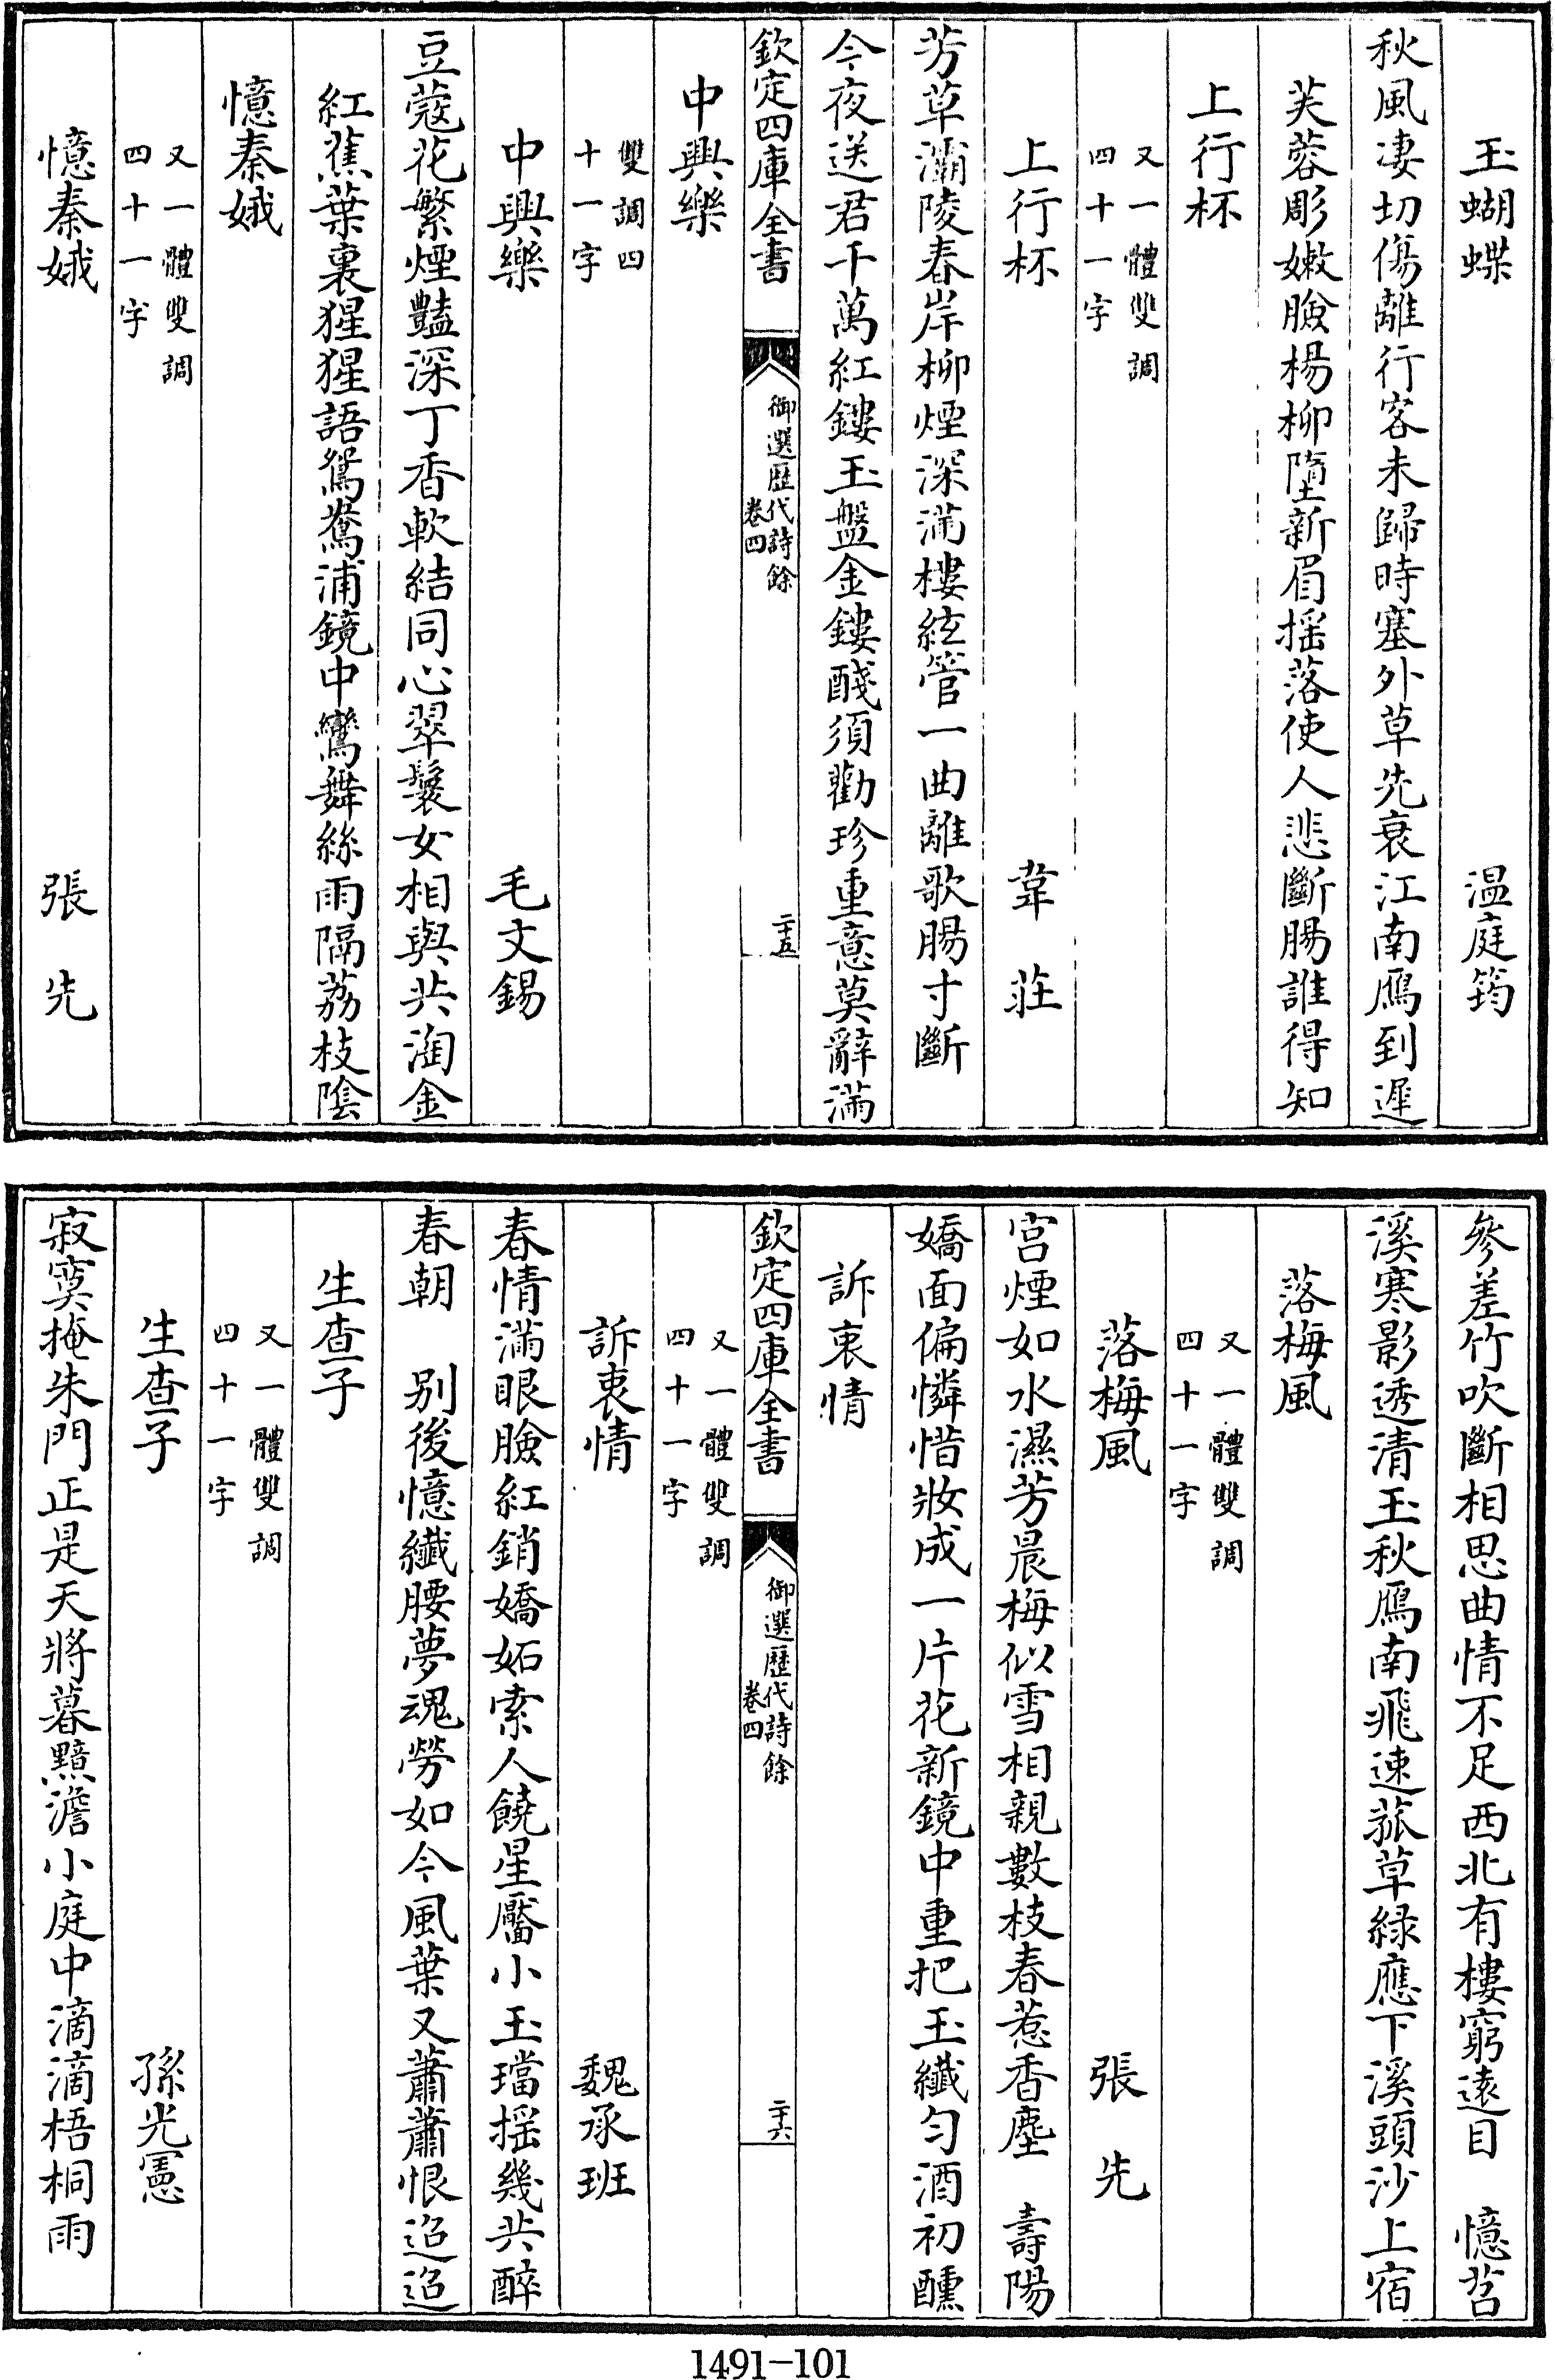 玉蝴蝶　溫庭筠
秋風淒切傷離行客未歸時塞外草先衰江南鴈到遲
芙蓉彫嫩臉楊柳墮新眉揺落使人悲斷腸誰得知
上行杯
又一體雙調
四十一字
上行杯　韋莊
芳草灞陵春岸柳煙深滿樓絃管一曲離歌腸寸斷
今夜送君千萬紅鏤玉盤金鏤醆須勸珍重意莫辭滿
欽定四庫全書
御選歴代詩餘
卷四
二十五
中興樂
雙調四
十一字
中興樂　毛文錫
豆蔻花繁煙豔深丁香軟結同心翠鬟女相與共淘金
紅蕉葉裏猩猩語鴛鴦浦鏡中鸞舞絲雨隔荔枝隂
憶秦娥
又一體雙調
四十一字
憶秦娥　張先
參差竹吹斷相思曲情不足西北有樓窮遠目　憶苕
溪寒影透清玉秋鴈南飛速菰草緑應下溪頭沙上宿
落梅風
又一體雙調
四十一字
落梅風　張先
宮煙如水濕芳晨梅似雪相親數枝春惹香塵　壽陽
嬌面偏憐惜妝成一片花新鏡中重把玉纖勻酒初醺
訴衷情
欽定四庫全書
御選歴代詩餘
卷四
二十六
又一體雙調
四十一字
訴衷情　魏承班
春情滿眼臉紅銷嬌妬索人饒星靨小玉璫揺幾共醉
春朝　別後憶纖腰夢魂勞如今風葉又蕭蕭恨迢迢
生查子
又一體雙調
四十一字
生查子　孫光憲
寂寞掩朱門正是天將暮黯澹小庭中滴滴梧桐雨
1491-101